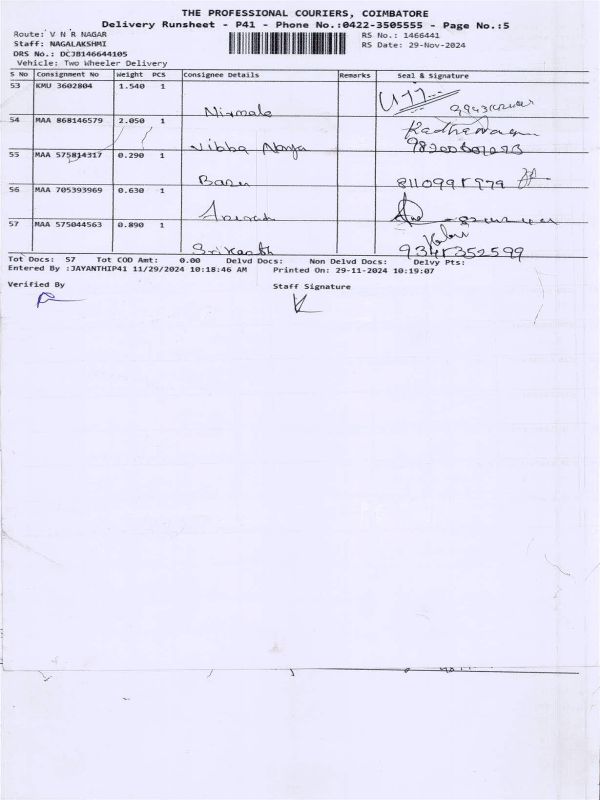 THE PROFESSIONAL COURIERS, COIMBATORE
Delivery Runsheet - P41 - Phone No.:0422-3505555 - Page No.:5
Route: V N R NAGAR RS No.: 1466441
Staff: NAGALAKSHMI RS Date: 29-Nov-2024
DRS No.: DCJB146644105
Vehicle: Two Wheeler Delivery
S No Consignment No Weight PCS Consignee Details Remarks Seal & Signature
53 KMU 3602804 1.540 1
Nirmala
54 MAA 868146579 2.050 1
Vibba Naya
55 MAA 575814317 0.290 1
Baru
56 MAA 705393969 0.630 1
57 MAA 575044563 0.890 1
Srikanth 9345352599
Tot Docs: 57 Tot COD Amt: 0.00 Delvd Docs: Non Delvd Docs: Delvy Pts:
Entered By :JAYANTHIP41 11/29/2024 10:18:46 AM Printed On: 29-11-2024 10:19:07
Verified By Staff Signature